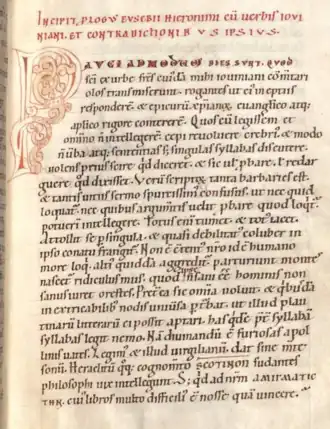 INCIPIT, PLOGUS EUSEBII HIERONIMI CŨ VERBIS IOVI
NIANI. ET CONTRADICTIONIBUS IPSIUS.
PAUCI ADMODŨ DIES SUNT. QUOD
sc̃i ex urbe frẽs cuiusdã mihi iouiniani cõmtari
olos transmiserunt. rogantes ut ei ineptiis
responderẽ. et epicurũ xp̃ianu euuanglico atq;
aplico rigore contererẽ. Quos cũ legissem et
omnino ñ intellegerẽ. cepi reuoluere crebri. et modo
ñ uba atq; sententias sꝫ singulas syllabas discutere.
uolens prius scire qd̃ diceret. et sic ul ꝓbare. ul redar
guere qd̃ dixisset. Verũ scriptoꝝ tanta barbaries est.
et tantis uitiis sermo spurcissimis confusus. ut nec quid
loquat̃. nec quibus argumtis uelit ꝓbare quod loqt̃.
potueri intellegere. Totus eni tumet. et tot iacet.
Attollit se ꝑ singula. et quasi debilitat coluber in
ipso conatu frangit. Non ẽ ctent nr̃o id ẽ humano
more loq. altius quiddã aggredit. parturiunt montes
nascet ridiculus mus. quod ipse
sanus iuret orestes. Pret ea sic omia uoluit. et qbusdã
in extricabilib; nodis uniusa ꝑt̃bat. ut illud plau
tinarũ litterarũ ei possit aptari. has qde ꝑt syballã
legit nemo. Nã diuinandũ ẽ furiosas apol
linis uates. Legim et illud uirgilianũ. dat sine mte
sonũ. Heraclitũ qq; cognomto scotinon sudantes
philosophi uix intellegunt. S; qd ad nr̃m AINIGMATIC
THN. cui libros multo difficili ẽ nosse quã uincere.